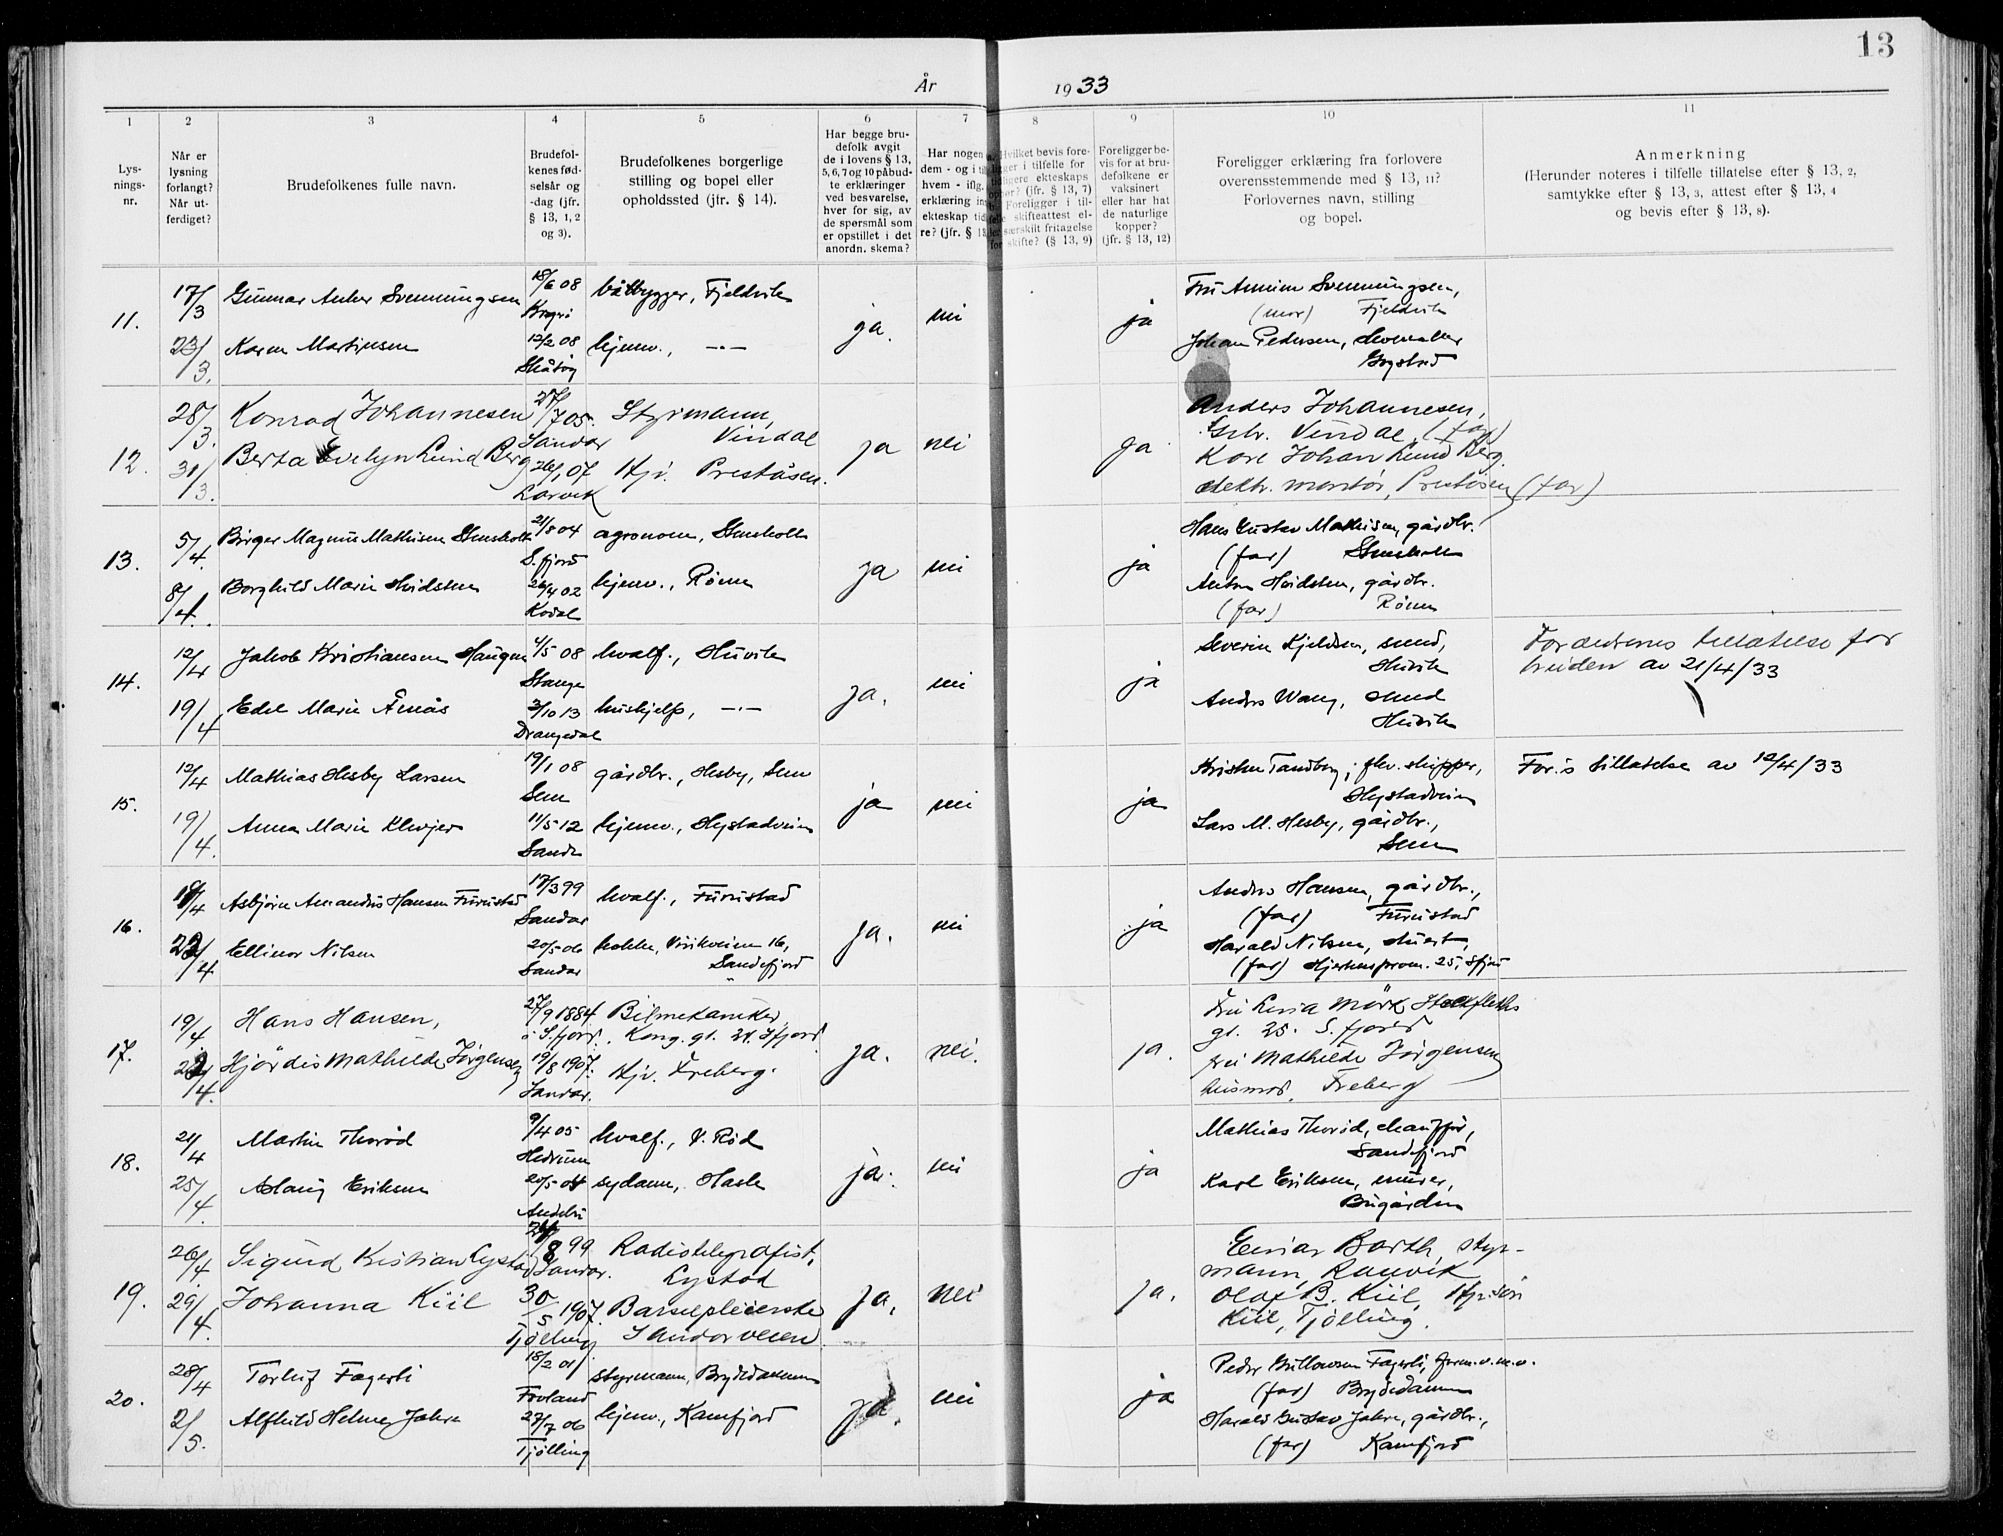 13
År 1933
1 2 3 4 5 6 7 8 9 10 11
Lys-
nings-
nr.
Når er
lysning
forlangt?
Når ut-
ferdiget?
Brudefolkenes fulle navn.
Brudefol-
kenes fød-
selsår og
-dag (jfr.
§ 13, 1, 2
og 3).
Brudefolkenes borgerlige
stilling og bopel eller
opholdssted (jfr. § 14).
Har begge bru-
defolk avgit
de i lovens § 13,
5, 6, 7 og 10 påbud-
te erklæringer
ved besvarelse,
hver for sig, av
de spørsmål som
er opstillet i det
anordn. skema?
Har nogen a
dem - og i ti
hvem - iflg.
erklæring in
ekteskap tid
re? (jfr. § 1
Hvilket bevis fore-
ligger i tilfelle for
tidligere ekteskaps
ophør? (jfr. § 13, 7)
Foreligger i til-
felle skifteattest el-
ler særskilt fritagelse
for skifte? (§ 13, 9)
Foreligger be-
vis for at bru-
defolkene er
vaksinert
eller har hat
de naturlige
kopper?
(jfr. § 13, 12)
Foreligger erklæring fra forlovere
overensstemmende med § 13, 11?
Forlovernes navn, stilling
og bopel.
Anmerkning
(Herunder noteres i tilfelle tillatelse efter § 13, 2,
samtykke efter § 13, 3, attest efter § 13, 4
og bevis efter § 13, 8).
11.
17/3
23/3.
Gunnar Anker Svenningsen
Karen Martinsen
18/6 08
12/2 08
Skåtøy
båtbygger, Fjeldvik
hjemv., -"-
ja.
nei
ja
Fru Svenningsen,
(mor) Fjeldvik
Johan Pedersen,
Gogstad
12.
28/3.
31/3.
Konrad Johannesen
Berta Evelyn Lund Berg
27/7 05.
Sandar
26/1 07
Larvik
Styrmann,
Vindal
Hjv. Preståsen.
ja
nei
ja
Anders Johannesen,
Gbr. Vindal, (far)
Kare Johan Lund Berg
elektr. montør, Preståsen (far)
13.
5/4.
8/4.
Birger Magnus Mathisen Stensholt
Borghild Marie Hvidsten
21/8 04
S.fjord
26/4 02
Kodal
agronom, Stensholt
hjemv., Rømen
ja
nei
ja
Hans Gustav Mathisen, gårdbr.
(far) Stensholt
Anton Hvidsten, gårdbr.
(far) Rømen
14.
12/4
19/4
Jakob Kristiansen Haugen
Edel Marie Åmås
4/5 08
Stange
3/10 13
Drangedal
hvalf., Huvik
hushjelp, -"-
ja.
nei
ja
Severin Kjeldsen, smed,
Huvik
Anders Wang, smed
Huvik
Forældrenes tillatelse for
bruden av 21/4/33
15.
12/4
19/4.
Mathias Hesby Larsen
Anna Marie Klevjer
19/1 08
Sem
11/5 12
Sande
gårdbr., Hesby, Sem
hjemv., Hystadveien
ja
nei
ja
Kristen Tandberg, flv. skipper,
Hystadveien
Lars M. Hesby, gårdbr.,
Sem
For.s tillatelse av 12/4/33
16.
19/4
22/4
Asbjørn Amandus Hansen Furustad
Ellinor Nilsen
17/3 99
Sandar
20/5 06
Sandar
hvalf., Furustad
kokke, Virikveien 16,
Sandefjord
ja.
nei
ja
Anders Hansen, gårdbr.,
(far) Furustad
Harald Nilsen,
(far) Hjertnesprom. 25, Sfjord
17.
19/4
22/4.
Hans Hansen,
Hjördis Mathilde Jörgensen
27/9 1884
i S.fjord.
19/8 1907.
Sandar.
Bilmekaniker,
Kong. gt. 24. Sfjord
Hjv. Freberg.
ja.
nei.
ja.
Fru Mörk
gt. 25. S.fjord
Fru Mathilde Jörgensen
husmor. Freberg
18.
21/4
25/4.
Martin Thorød
Aslaug Eriksen
9/4 05
Hedrum
20/5 04
Andebu
hvalf., V. Rød
sydame, Hasle
ja.
nei
ja
Mathias Thorød, chauffør,
Sandefjord
Karl Eriksen, murer,
Bugården
19.
26/4
29/4.
Sigurd Kristian Lystad
Johanna Kiil
8 99
Sandar.
30/5 1907.
Tjølling
Radiotelegrafist,
Lystad
Barselpleierske
Sandarveien
ja.
nei
ja.
Einar Barth, styr-
mann, Ranvik
Olof B. Kiil,
Kiil, Tjølling.
20.
28/4
2/5.
Torleif Fagerli
Alfhild Helene Jahre
18/2 01
Fovland
27/7 06
Tjølling
styrmann, Brydedammen
hjemv., Kamfjord
ja.
nei
ja
Peder Gullowsen Fagerli, form.v.m.v.
(far) Brydedammen
Harald Gustav Jahre, gårdbr.,
(far) Kamfjord